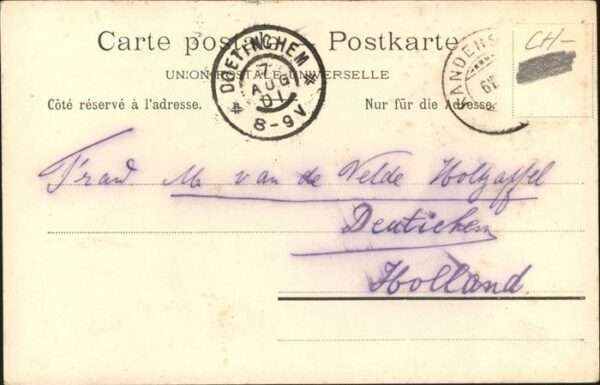 Carte postale. Postkarte.
CH-
UNION POSTALE UNIVERSELLE
Côté réservé à l'adresse. Nur für die Adresse.
DOETINCHEM
7
AUG
01
8-9V
KANDERS
Frau M van de Velde Holzaffel
Deutichem
Holland.